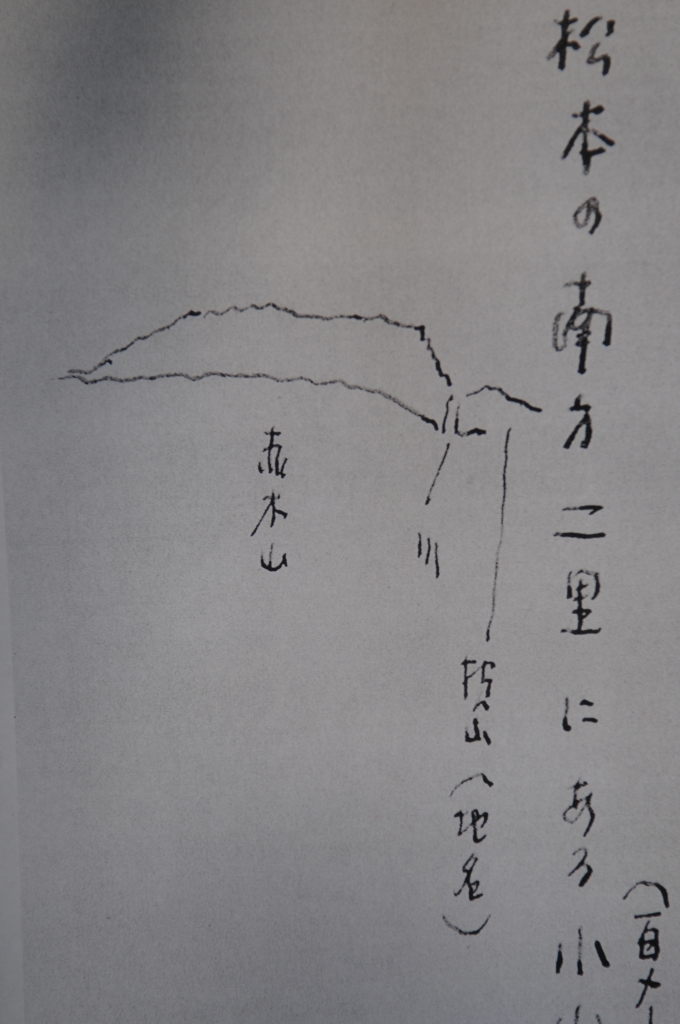 (百メー
松本の南方二里にある小山
川
赤木山
山(地名)